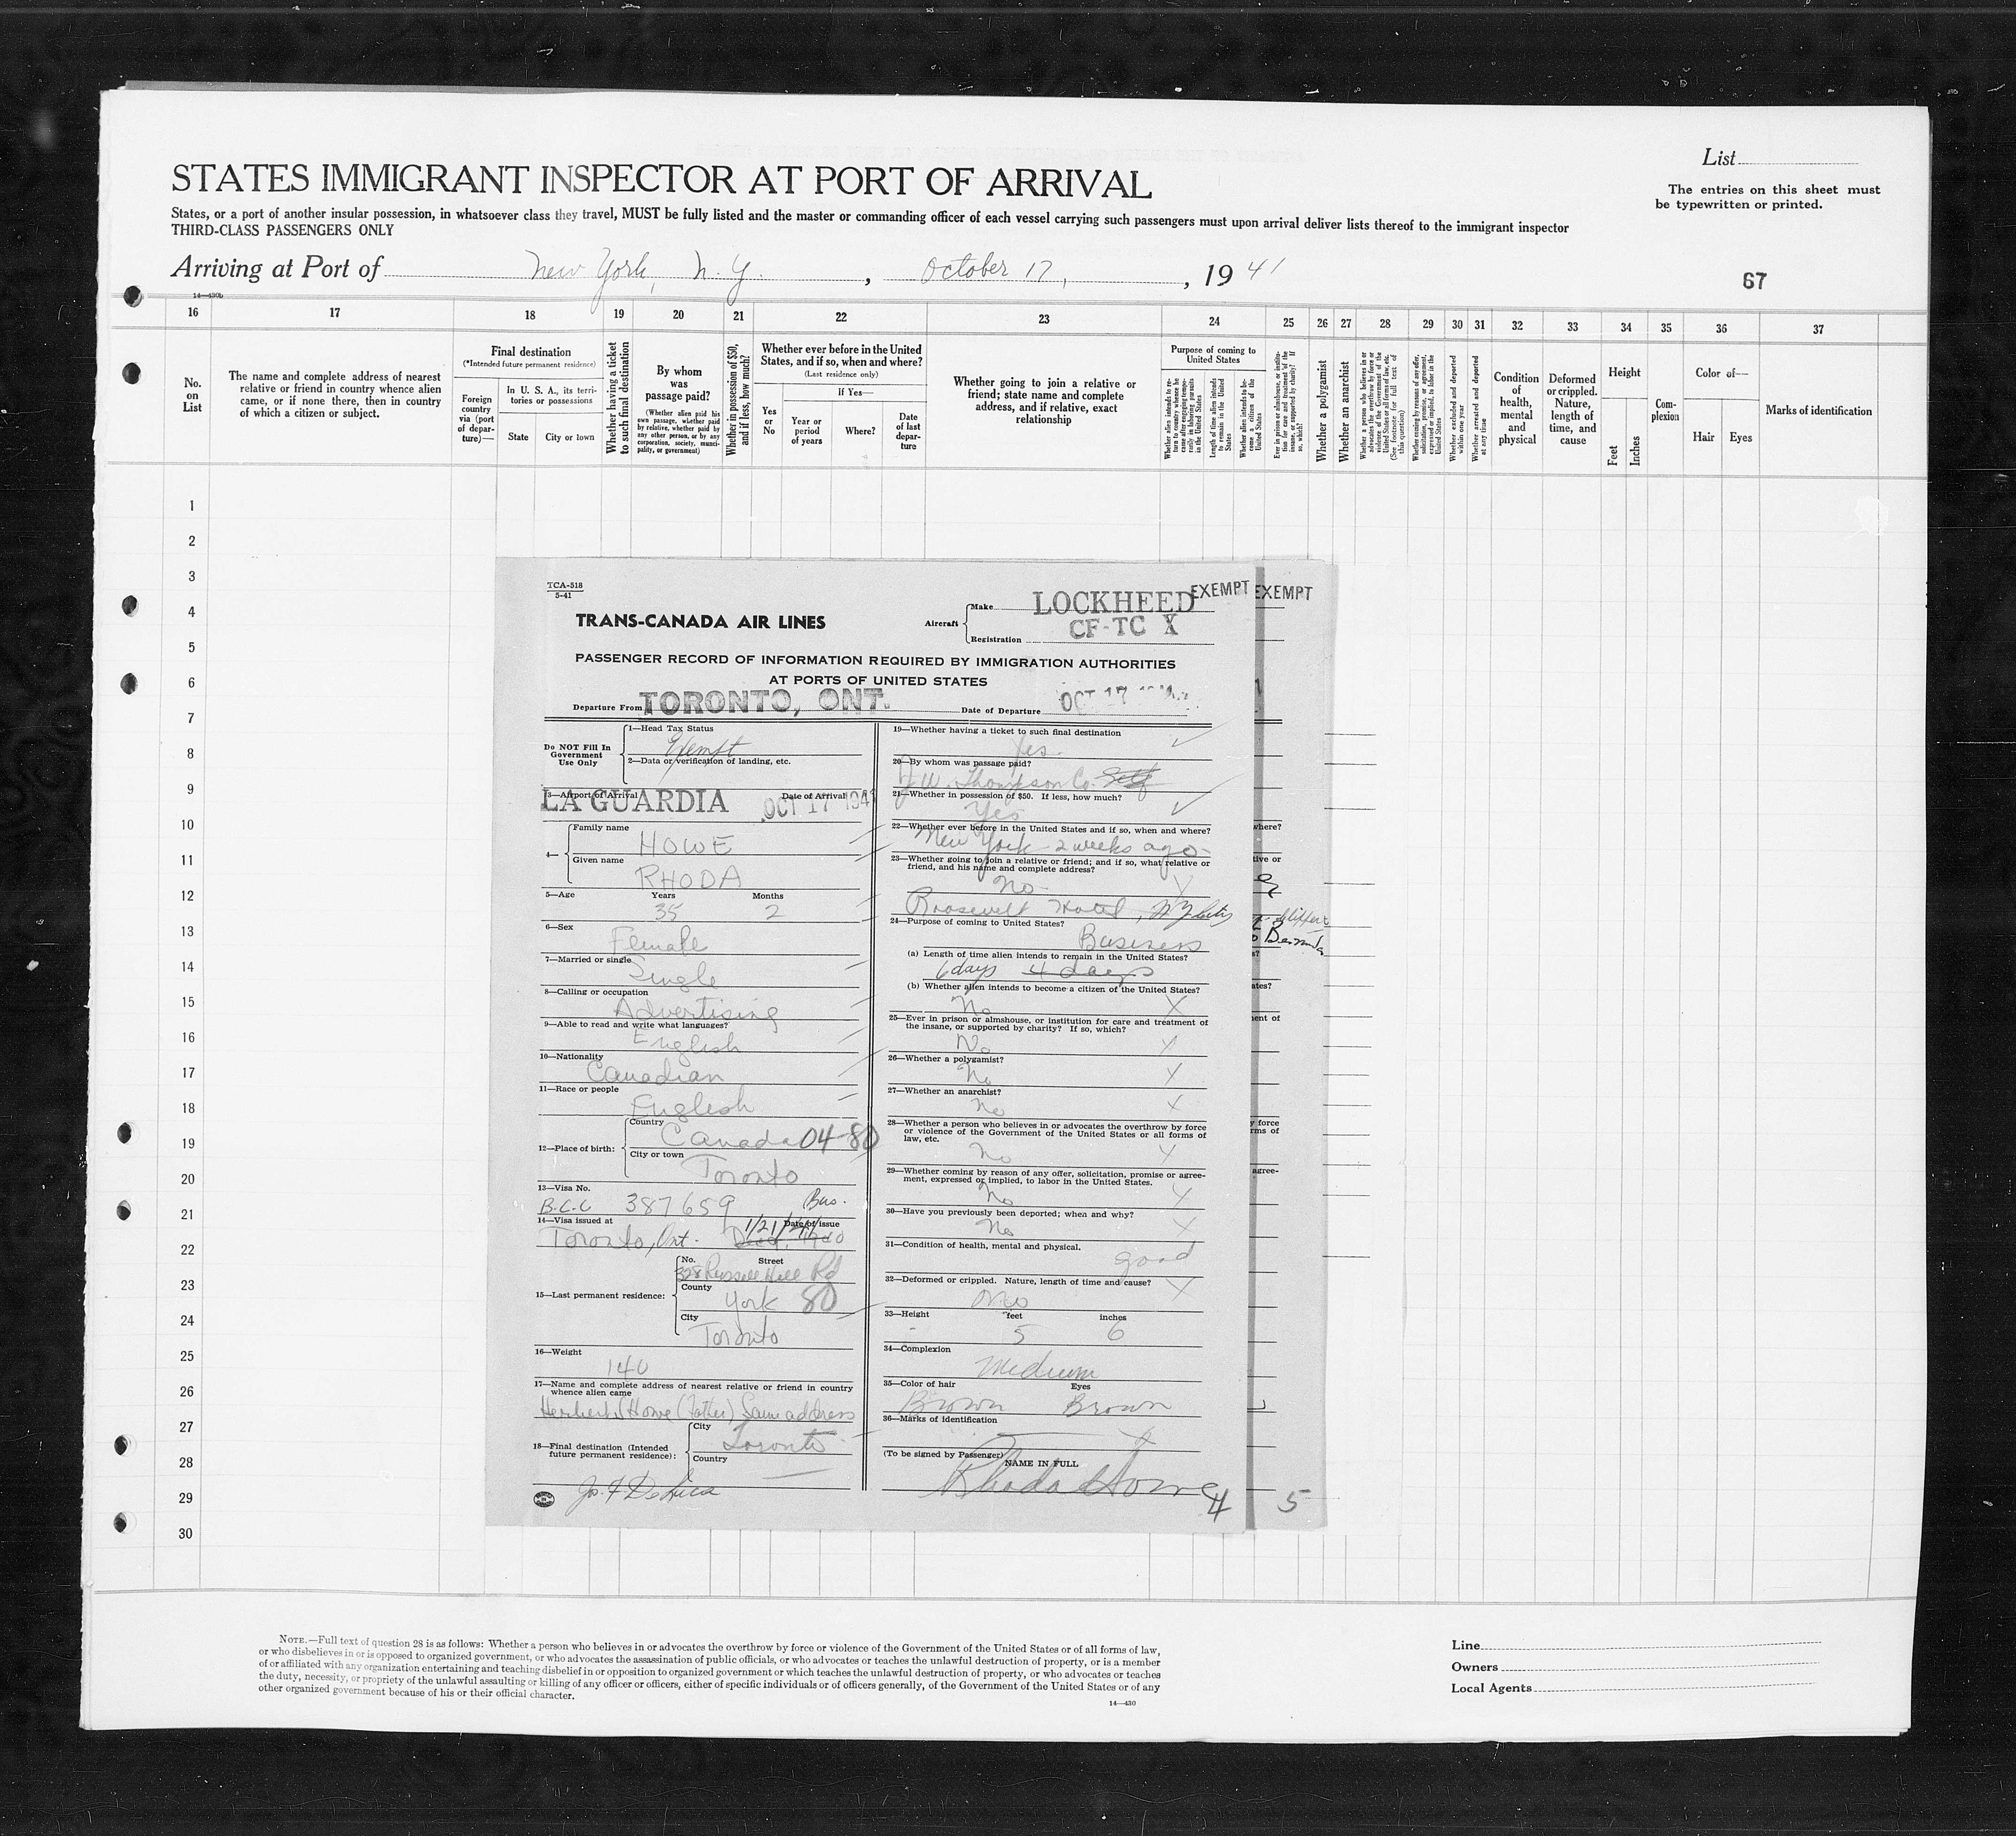 List
STATES IMMIGRANT INSPECTOR AT PORT OF ARRIVAL
The entries on this sheet must
be typewritten or printed.
States, or a port of another insular possession, in whatsoever class they travel, MUST be fully listed and the master or commanding officer of each vessel carrying such passengers must upon arrival deliver lists thereof to the immigrant inspector
THIRD-CLASS PASSENGERS ONLY
Arriving at Port of New York, N.Y., October 17, 1941
67
14—430b
16 17 18 19 20 21 22 23 24 25 26 27 28 29 30 31 32 33 34 35 36 37
No. on List
The name and complete address of nearest relative or friend in country whence alien came, or if none there, then in country of which a citizen or subject.
Final destination
(*Intended future permanent residence)
Foreign country via (port of departure)—
In U. S. A., its territories or possessions
State
City or town
Whether having a ticket to such final destination
By whom was passage paid?
(Whether alien paid his own passage, whether paid by relative, whether paid by any other person, or by any corporation, society, municipality, or government)
Whether in possession of $50, and if less, how much?
Whether ever before in the United States, and if so, when and where?
(Last residence only)
Yes or No
If Yes—
Year or period of years
Where?
Date of last departure
Whether going to join a relative or friend; state name and complete address, and if relative, exact relationship
Purpose of coming to United States
Whether alien intends to return to country whence he came after engaging temporarily in laboring pursuits in the United States
Length of time alien intends to remain in the United States
Whether alien intends to become a citizen of the United States
Ever in prison or almshouse, or institution for care and treatment of the insane, or supported by charity? If so, which?
Whether a polygamist
Whether an anarchist
Whether a person who believes in or advocates the overthrow by force or violence of the Government of the United States or all forms of law, etc. (See footnote for full text of this question)
Whether coming by reason of any offer, solicitation, promise, or agreement, expressed or implied, to labor in the United States
Whether excluded and deported within one year
Whether arrested and deported at any time
Condition of health, mental and physical
Deformed or crippled. Nature, length of time, and cause
Height
Feet
Inches
Complexion
Color of—
Hair
Eyes
Marks of identification
1
2
3
4
5
6
7
8
9
10
11
12
13
14
15
16
17
18
19
20
21
22
23
24
25
26
27
28
29
30
TCA-518
5-41
TRANS-CANADA AIR LINES
Aircraft
Make LOCKHEED
EXEMPT
EXEMPT
Registration CF-TC X
PASSENGER RECORD OF INFORMATION REQUIRED BY IMMIGRATION AUTHORITIES
AT PORTS OF UNITED STATES
Departure From TORONTO, ONT. Date of Departure OCT 17
Do NOT Fill In Government Use Only
1—Head Tax Status
Exempt
2—Data or verification of landing, etc.
3—Airport of Arrival LA GUARDIA Date of Arrival OCT 17 1941
4— Family name
HOWE
Given name
RHODA
5—Age Years Months
35 2
6—Sex
Female
7—Married or single
Single
8—Calling or occupation
Advertising
9—Able to read and write what languages?
English
10—Nationality
Canadian
11—Race or people
English
12—Place of birth: Country
Canada 04-80
City or town
Toronto
13—Visa No.
B.C.C 387659 Bus.
14—Visa issued at Date of issue
Toronto, Ont. 1/21/41
15—Last permanent residence: No. Street
328 Russell Hill Rd
County
York 80
City
Toronto
16—Weight
140
17—Name and complete address of nearest relative or friend in country whence alien came
Herbert Howe (Father) Same address
18—Final destination (Intended future permanent residence): City
Toronto
Country
19—Whether having a ticket to such final destination
Yes
20—By whom was passage paid?
J.W. Thompson Co. Self
21—Whether in possession of $50. If less, how much?
Yes
22—Whether ever before in the United States and if so, when and where?
New York - 2 weeks ago-
23—Whether going to join a relative or friend; and if so, what relative or friend, and his name and complete address?
No-
Roosevelt Hotel,
24—Purpose of coming to United States?
Business
(a) Length of time alien intends to remain in the United States?
6 days 4 days
(b) Whether alien intends to become a citizen of the United States?
No
25—Ever in prison or almshouse, or institution for care and treatment of the insane, or supported by charity? If so, which?
No
26—Whether a polygamist?
No
27—Whether an anarchist?
No
28—Whether a person who believes in or advocates the overthrow by force or violence of the Government of the United States or all forms of law, etc.
No
29—Whether coming by reason of any offer, solicitation, promise or agreement, expressed or implied, to labor in the United States.
No
30—Have you previously been deported; when and why?
No
31—Condition of health, mental and physical.
good
32—Deformed or crippled. Nature, length of time and cause?
no
33—Height feet inches
5 6
34—Complexion
Medium
35—Color of hair Eyes
Brown Brown
36—Marks of identification
(To be signed by Passenger) NAME IN FULL
Rhoda Howe
4
5
NOTE.—Full text of question 28 is as follows: Whether a person who believes in or advocates the overthrow by force or violence of the Government of the United States or of all forms of law,
or who disbelieves in or is opposed to organized government, or who advocates the assassination of public officials, or who advocates or teaches the unlawful destruction of property, or is a member
of or affiliated with any organization entertaining and teaching disbelief in or opposition to organized government or which teaches the unlawful destruction of property, or who advocates or teaches
the duty, necessity, or propriety of the unlawful assaulting or killing of any officer or officers, either of specific individuals or of officers generally, of the Government of the United States or of any
other organized government because of his or their official character.
14—430
Line
Owners
Local Agents